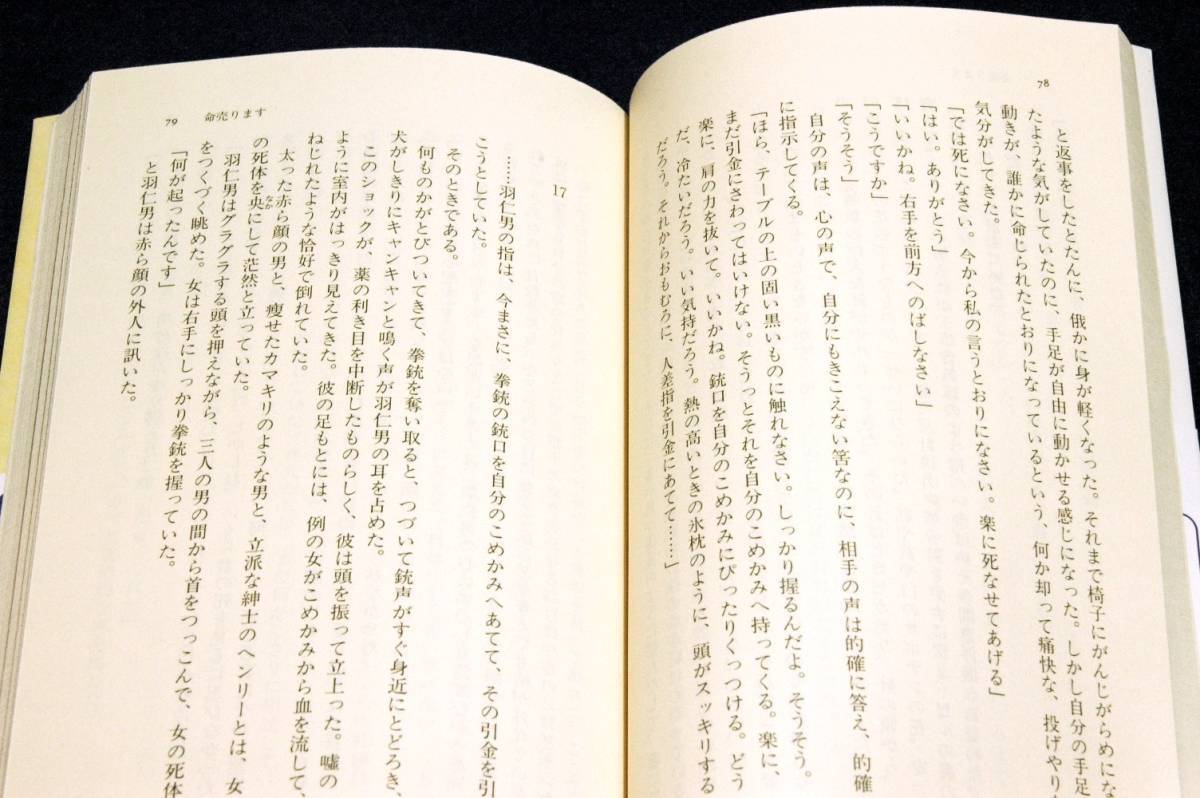 78
と返事をしたとたんに、俄かに身が軽くなった。それまで椅子にがんじがらめにな
たような気がしていたのに、手足が自由に動かせる感じになった。しかし自分の手足
動きが、誰かに命じられたとおりになっているという、何か却って痛快な、投げやり
気分がしてきた。
「では死になさい。今から私の言うとおりになさい。楽に死なせてあげる」
「はい。ありがとう」
「いいかね。右手を前方へのばしなさい」
「こうですか」
「そうそう」
自分の声は、心の声で、自分にもきこえない筈なのに、相手の声は的確に答え、的確
に指示してくる。
「ほら、テーブルの上の固い黒いものに触れなさい。しっかり握るんだよ。そうそう。
まだ引金にさわってはいけない。そうっとそれを自分のこめかみへ持ってくる。楽に、
楽に、肩の力を抜いて。いいかね。銃口を自分のこめかみにぴったりくっつける。どう
だ、冷たいだろう。いい気持だろう。熱の高いときの氷枕のように、頭がスッキリする
だろう。それからおもむろに、人差指を引金にあてて……」
17
……羽仁男の指は、今まさに、拳銃の銃口を自分のこめかみへあてて、その引金を引
こうとしていた。
そのときである。
何ものかがとびついてきて、拳銃を奪い取ると、つづいて銃声がすぐ身近にとどろき、
犬がしきりにキャンキャンと鳴く声が羽仁男の耳を占めた。
このショックが、薬の利き目を中断したものらしく、彼は頭を振って立上った。嘘の
ように室内がはっきり見えてきた。彼の足もとには、例の女がこめかみから血を流して、
ねじれたような恰好で倒れていた。
太った赤ら顔の男と、痩せたカマキリのような男と、立派な紳士のヘンリーとは、女
の死体を央なかにして茫然と立っていた。
羽仁男はグラグラする頭を押えながら、三人の男の間から首をつっこんで、女の死体
をつくづく眺めた。女は右手にしっかり拳銃を握っていた。
「何が起ったんです」
と羽仁男は赤ら顔の外人に訊いた。
79 命売ります